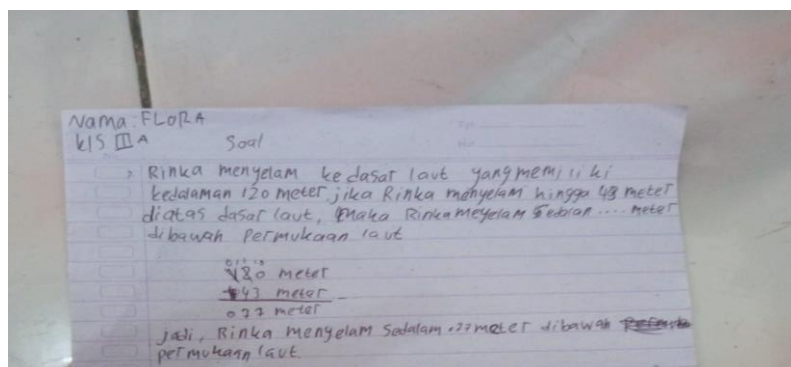 Nama: FLORA
kls III A
Soal
Rinka menyelam ke dasar laut yang memiliki
kedalaman 120 meter, jika Rinka menyelam hingga 43 meter
diatas dasar laut, maka Rinka meyelam .... meter
dibawah permukaan laut
0 11 10
120 meter
43 meter
077 meter
jadi, Rinka menyelam Sedalam .77 meter dibawah
permukaan laut.